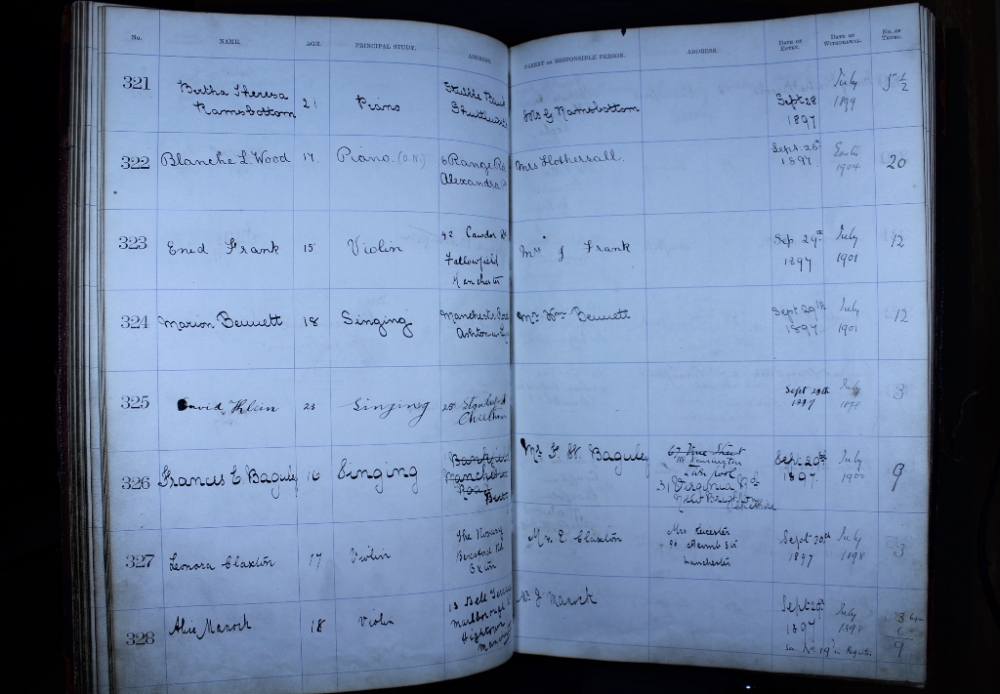 No. NAME. AGE. PRINCIPAL STUDY. ADDRESS. PARENT or RESPONSIBLE PERSON. ADDRESS. DATE OF ENTRY. DATE OF WITHDRAWAL. NO. OF TERMS.
321 Bertha Theresa Ramsbottom 21 Piano Mr G Ramsbottom Sept 28 1897 July 1899 5½
322 Blanche L. Wood 17. Piano. 6 Range Alexandra Mrs Hothersall. Sept. 28th 1897 Easter 1904 20
323 Enid Frank 15 Violin 42 Cawdor Rd Fallowfield Manchester Mrs J Frank Sep 29th 1897 July 1901 12
324 Marion Bennett 18 Singing Manchester Ashton Mr Wm Bennett Sept 29th 1897 July 1901 12
325 David Klein 23 Singing 25 Cheetham Sept 29th 1897 July 1898 3
326 Frances E Baguley 16 Singing Manchester Road Mr F. W. Baguley 31 Virginia Rd New Brighton Cheshire Sept 1897. July 1900 9
327 Leonora Claxton 17 Violin The Rosary Beresford Rd Mr. E. Claxton Mrs Leicester Manchester Sept 30th 1897 July 1898 3
328 Alice Marock 18 Violin 13 Marlborough Hightown J Marock Sept 29th 1897 July 1898 3 6 9
See No 19 in Register